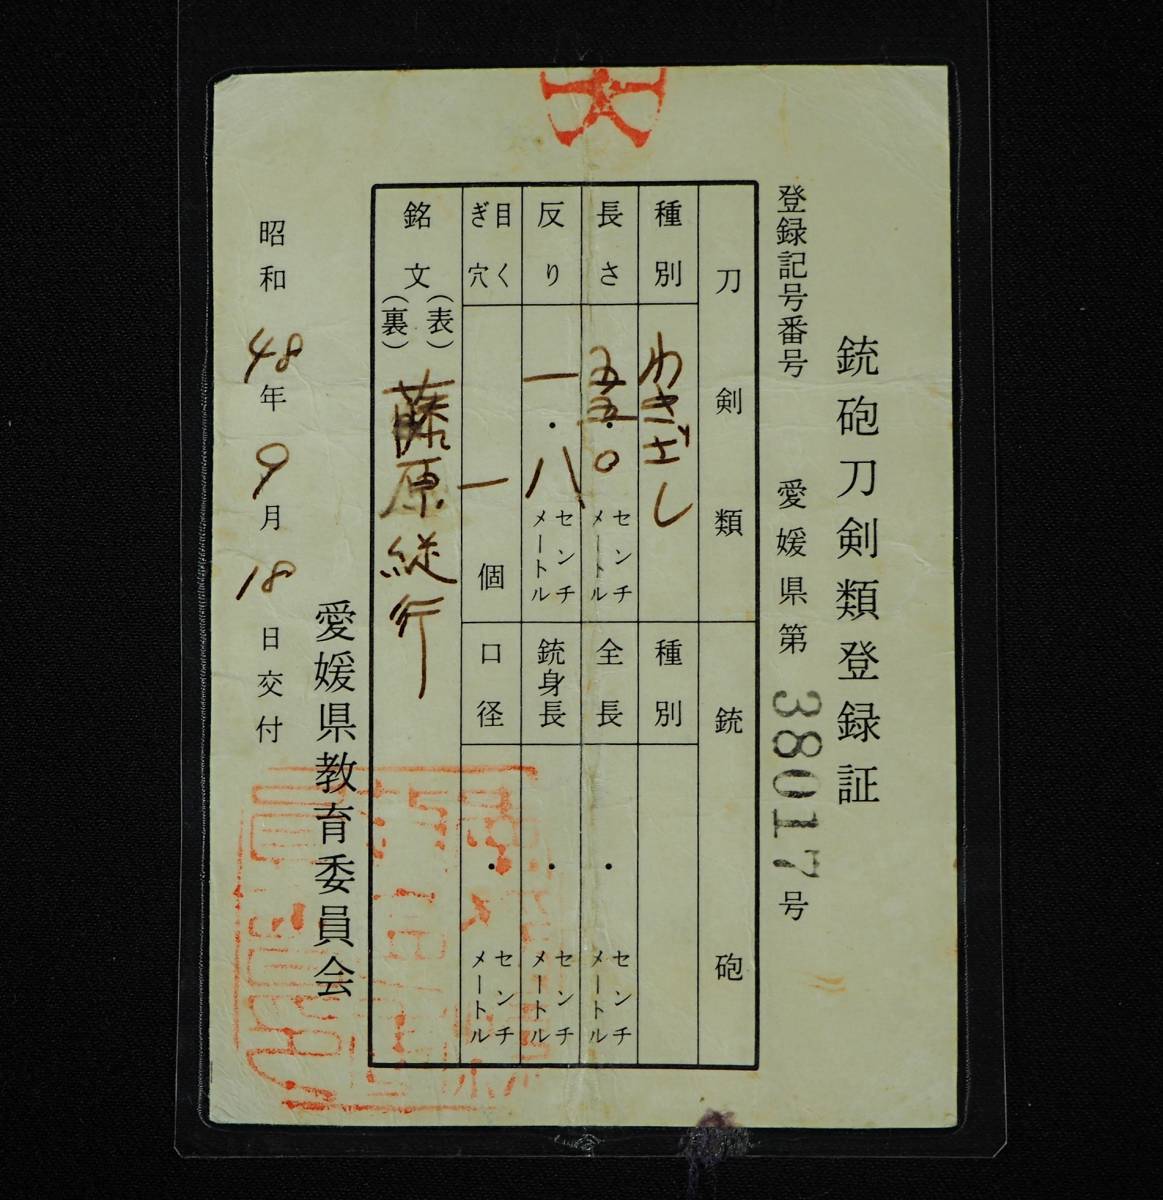 銃砲刀剣類登録証
登録記号番号 愛媛県第 38017 号
刀剣類 銃砲
種別 わきざし
長さ 五五・〇 センチメートル
反り 一・八 センチメートル
目くぎ穴 一 個
銘文 (表) (裏) 藤原縦行
種別
全長 ・ センチメートル
銃身長 ・ センチメートル
口径 ・ センチメートル
愛媛県教育委員会
昭和 48 年 9 月 18 日交付